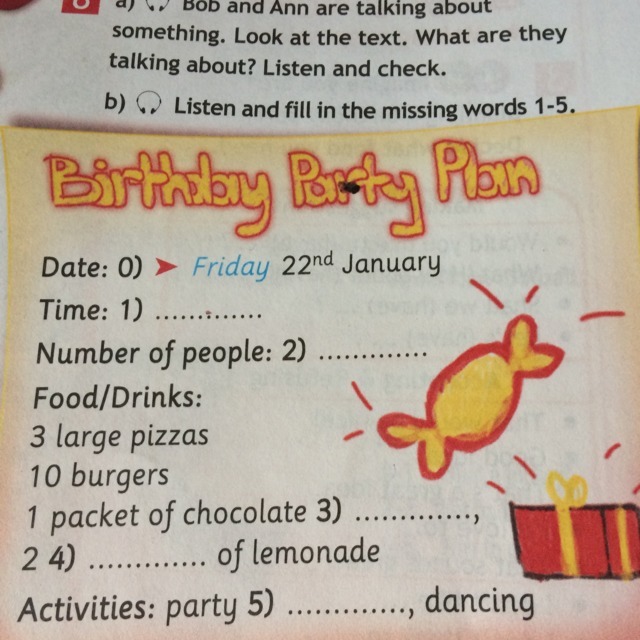 a) Bob and Ann are talking about
something. Look at the text. What are they
talking about? Listen and check.
b) Listen and fill in the missing words 1-5.
Birthday Party Plan
Date: 0) ➤ Friday 22nd January
Time: 1) ..............
Number of people: 2) ..............
Food/Drinks:
3 large pizzas
10 burgers
1 packet of chocolate 3) ..............,
2 4) .............. of lemonade
Activities: party 5) .............., dancing